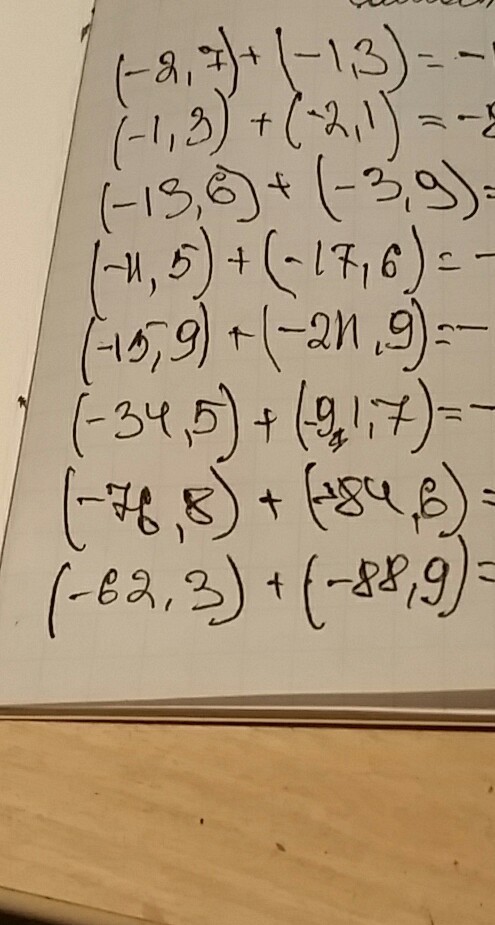 (-2,7)+(-1,3)=-
(-1,3)+(-2,1)=-
(-13,6)+(-3,9)=
(-11,5)+(-17,6)=-
(-15,9)+(-24,9)=-
(-34,5)+(-91,7)=-
(-76,8)+(-84,6)=
(-62,3)+(-88,9)=